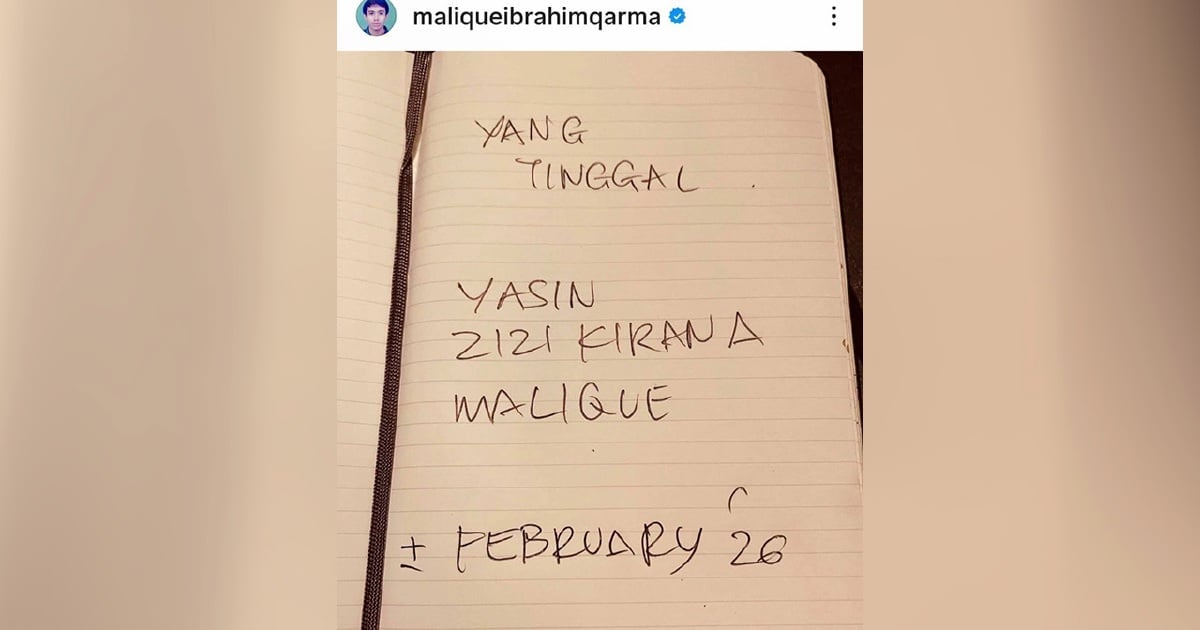 maliqueibrahimqarma
YANG
TINGGAL
YASIN
ZIZI KIRANA
MALIQUE
± FEBRUARY 26